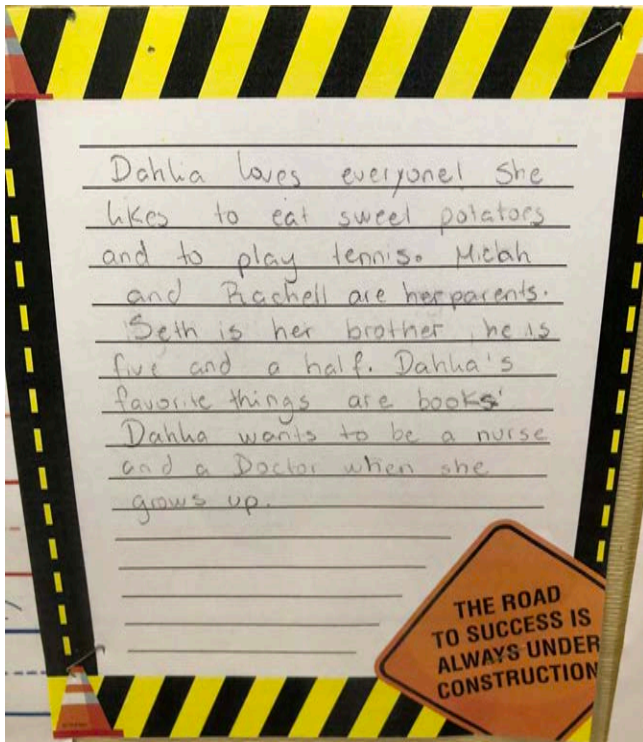 Dahlia loves everyone! She
likes to eat sweet potatoes
and to play tennis. Micah
and Rachell are her parents.
Seth is her brother, he is
five and a half. Dahlia's
favorite things are books.
Dahlia wants to be a nurse
and a Doctor when she
grows up.
THE ROAD
TO SUCCESS IS
ALWAYS UNDER
CONSTRUCTION